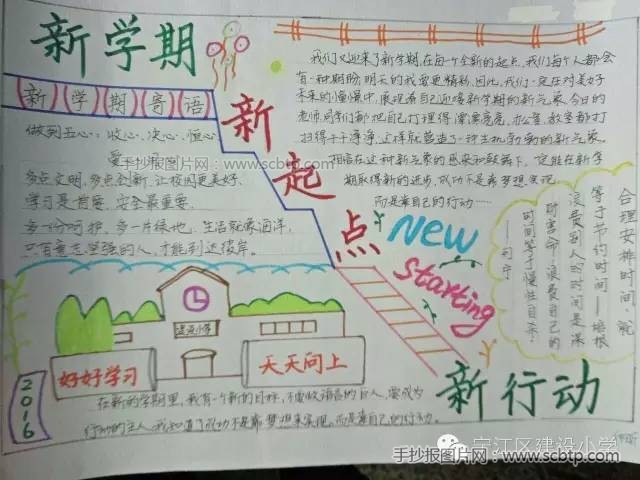 新学期
新学期寄语
做到五心：收心、决心、恒心
爱心
手抄报图片网：www.scbtp.com
多点文明，多点创新，让校园更美好。
学习最重要，安全最重要
多一份呵护，多一片绿地，生活就像海洋，
只有意志坚强的人，才能到达彼岸。
新起点
我们又迎来了新学期，在每一个全新的起点，我们每个人都会
有一种期盼，明天的我会更精彩，因此，我们一定在对美好
未来的憧憬中，展现着自己迎接新学期的新气象。今日的
老师同学们都把自己打理得漂漂亮亮，办公室、教室都打
扫得干干净净，这样就营造了一种生机勃勃的新气象。
相信在这种新气象的感染和鼓舞下，定能在新学
期取得新的进步，成功不是靠梦想实现
而是靠自己的行动……
合理安排时间，就
等于节约时间——培根
浪费别人的时间是谋
财害命，浪费自己的
时间等于慢性自杀。
——列宁
New
starting
建设小学
好好学习
天天向上
2016
新行动
在新的学期里，我有一个新的目标，不要做语言的巨人，要成为
行动的主人，我知道了成功不是靠梦想来实现，而是靠自己的行动。
宁江区建设小学
手抄报图片网：www.scbtp.com